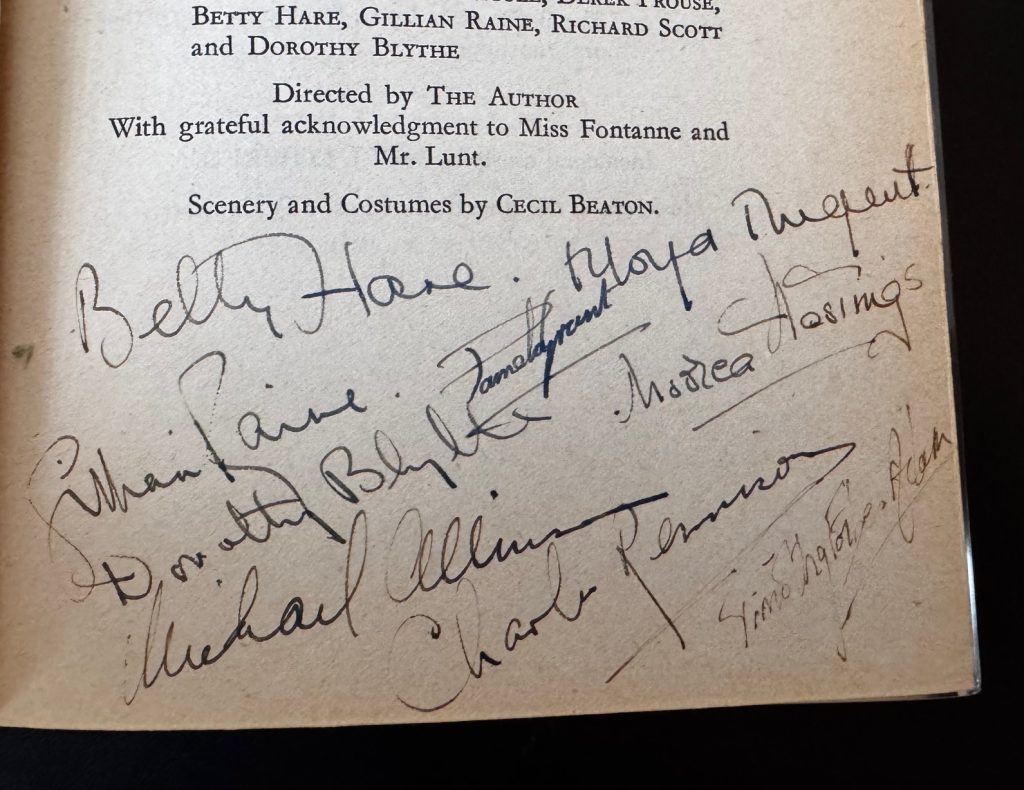 DEREK PROUSE,
BETTY HARE, GILLIAN RAINE, RICHARD SCOTT
and DOROTHY BLYTHE
Directed by THE AUTHOR
With grateful acknowledgment to Miss Fontanne and
Mr. Lunt.
Scenery and Costumes by CECIL BEATON.
Betty Hare. Moya Nugent.
Gillian Raine. Pamela Grant
Dorothy Blythe Moorea Hastings
Michael Allinson
Charles Rennison
Timothy Forbes Adam